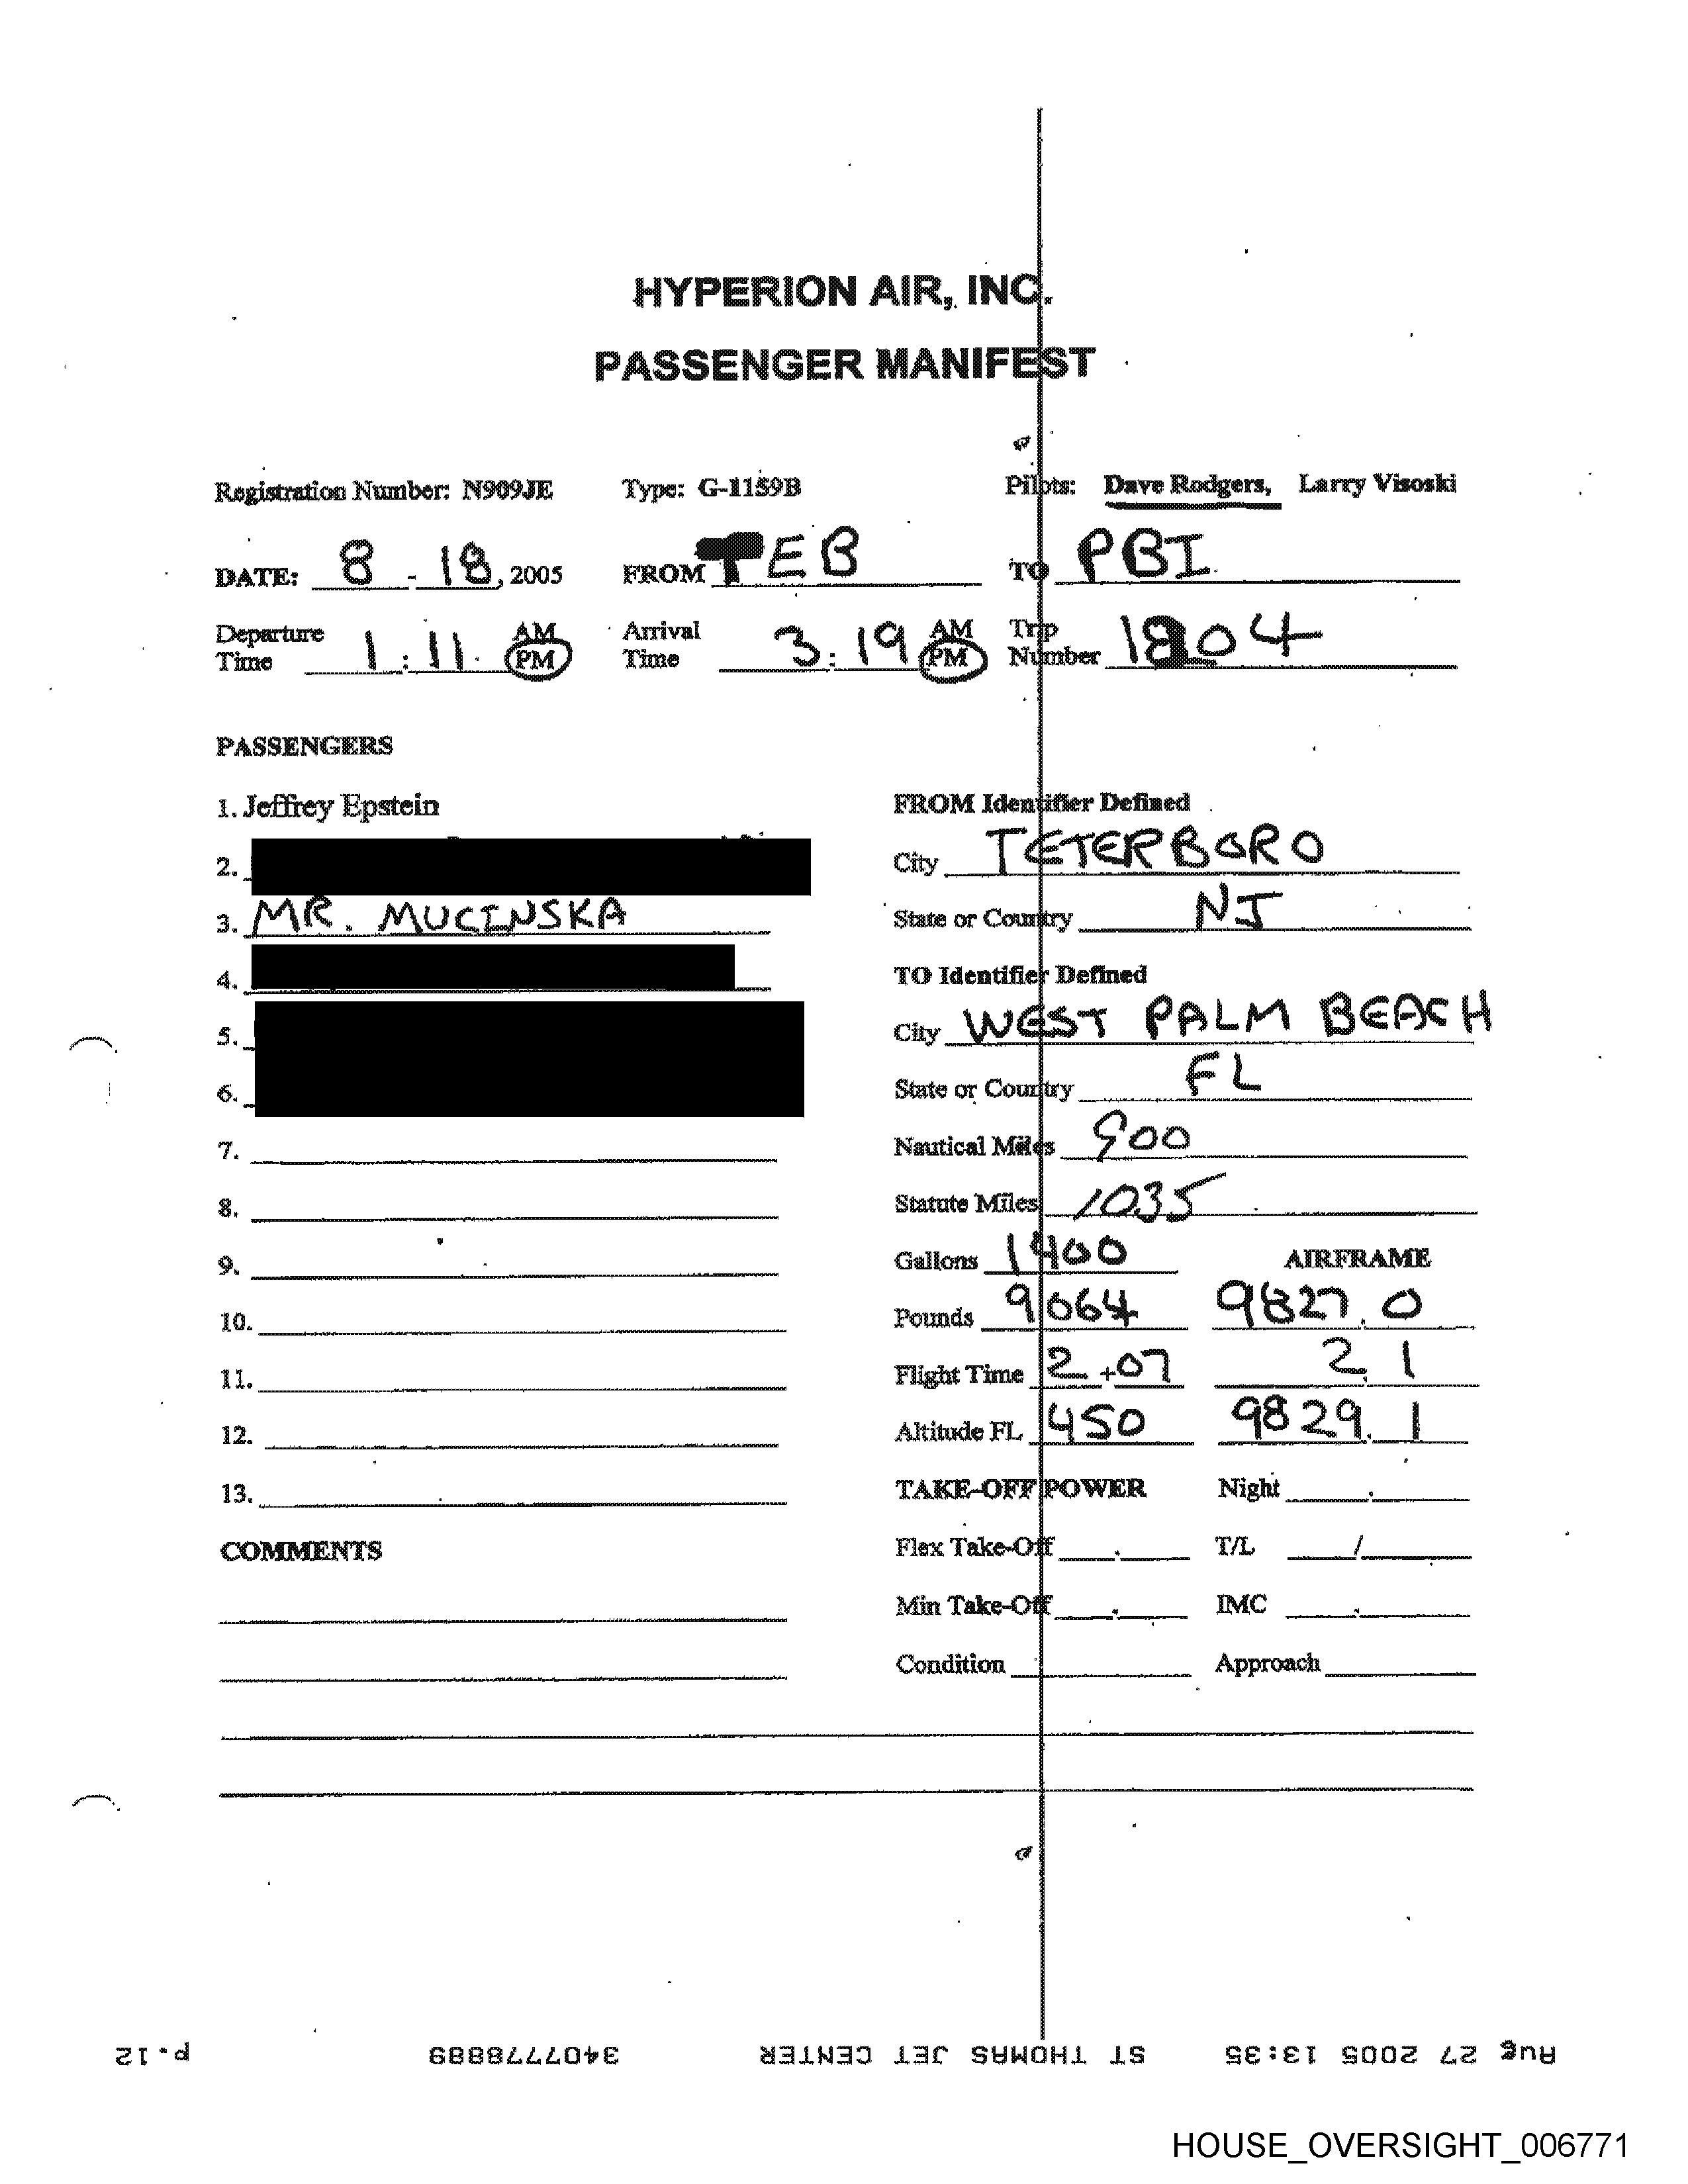 HYPERION AIR, INC.
PASSENGER MANIFEST
Registration Number: N909JE Type: G-1159B Pilots: Dave Rodgers, Larry Visoski
DATE: 8 - 18, 2005 FROM TEB TO PBI
Departure Time 1:11 AM PM Arrival Time 3:19 AM PM Trip Number 1804
PASSENGERS
1. Jeffrey Epstein
2.
3. MR. MUCINSKA
4.
5.
6.
7.
8.
9.
10.
11.
12.
13.
COMMENTS
FROM Identifier Defined
City TETERBORO
State or Country NJ
TO Identifier Defined
City WEST PALM BEACH
State or Country FL
Nautical Miles 900
Statute Miles 1035
Gallons 1400 AIRFRAME
Pounds 9064 9827.0
Flight Time 2+07 2.1
Altitude FL 450 9829.1
TAKE-OFF POWER Night
Flex Take-Off T/L /
Min Take-Off IMC
Condition Approach
Aug 27 2005 13:35 ST THOMAS JET CENTER 3407778889 p.12
HOUSE_OVERSIGHT_006771